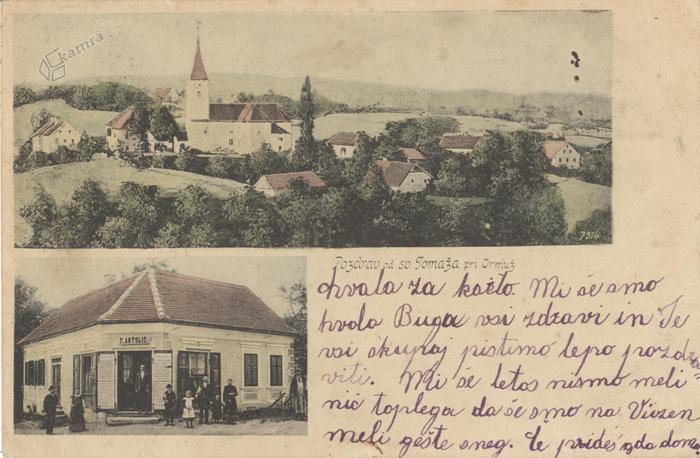 kamra
7516
Pozdrav od sv. Tomaža pri Ormuž
F. ANTOLIČ
hvala za kačto. Mi še smo
hvola Buga vsi zdravi in Te
vsi skupaj pistimo lepo pozdra
viti. Mi še letos nismo meli
nič toplega da še smo na Vüzen
meli gešte sneg. Če prideš kda domo